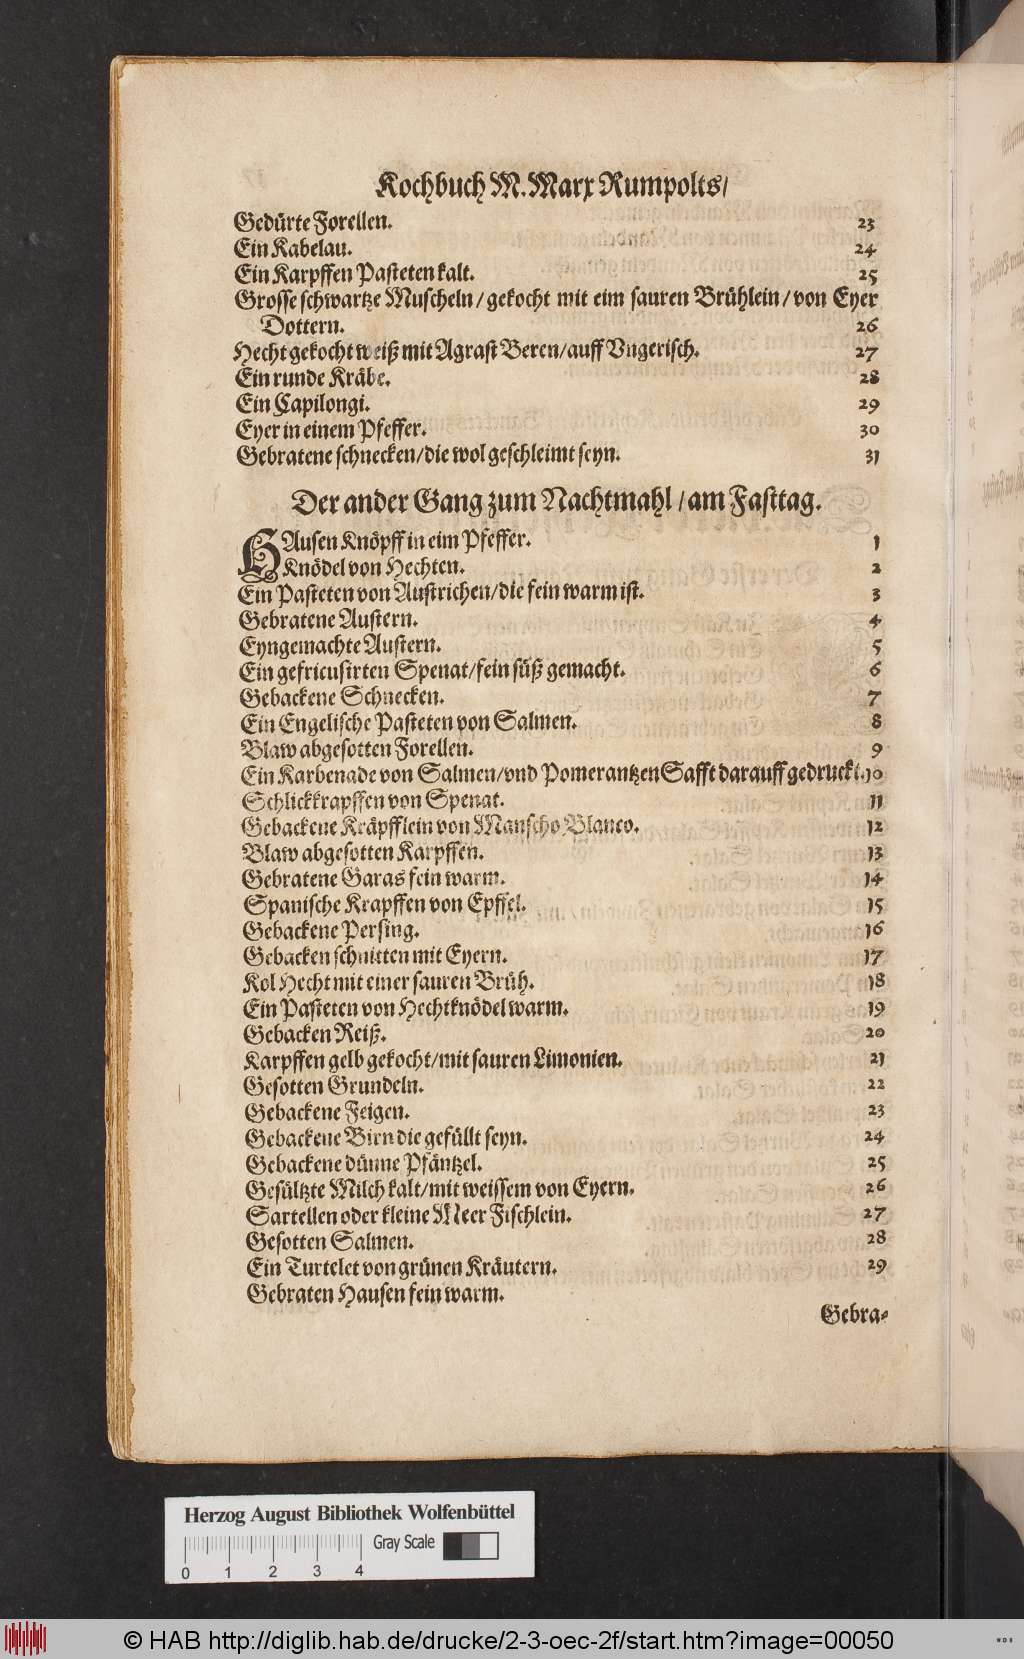 Kochbuch M. Marx Rumpolts/
Gedürte Forellen. 23
Ein Kabelau. 24
Ein Karpffen Pasteten kalt. 25
Grosse schwartze Muscheln/gekocht mit eim sauren Brühlein/von Eyer
Dottern. 26
Hecht gekocht weiß mit Agrast Beren/auff Vngerisch. 27
Ein runde Kräbe. 28
Ein Capilongi. 29
Eyer in einem Pfeffer. 30
Gebratene schnecken/die wol geschleimt seyn. 31
Der ander Gang zum Nachtmahl/am Fasttag.
HAusen Knöpff in eim Pfeffer. 1
Knödel von Hechten. 2
Ein Pasteten von Austrichen/die fein warm ist. 3
Gebratene Austern. 4
Eyngemachte Austern. 5
Ein gefricusirten Spenat/fein süß gemacht. 6
Gebackene Schnecken. 7
Ein Engelische Pasteten von Salmen. 8
Blaw abgesotten Forellen. 9
Ein Karbenade von Salmen/vnd Pomerantzen Safft darauff gedruckt. 10
Schlickkrapffen von Spenat. 11
Gebackene Kräpfflein von Manscho Blanco. 12
Blaw abgesotten Karpffen. 13
Gebratene Garas fein warm. 14
Spanische Krapffen von Epffel. 15
Gebackene Persing. 16
Gebacken schnitten mit Eyern. 17
Kol Hecht mit einer sauren Brüh. 18
Ein Pasteten von Hechtknödel warm. 19
Gebacken Reiß. 20
Karpffen gelb gekocht/mit sauren Limonien. 21
Gesotten Grundeln. 22
Gebackene Feigen. 23
Gebackene Birn die gefüllt seyn. 24
Gebackene dünne Pfäntzel. 25
Gesültzte Milch kalt/mit weissem von Eyern. 26
Sartellen oder kleine Meer Fischlein. 27
Gesotten Salmen. 28
Ein Turtelet von grünen Kräutern. 29
Gebraten Hausen fein warm.
Gebra-
Herzog August Bibliothek Wolfenbüttel
Gray Scale
0 1 2 3 4
© HAB http://diglib.hab.de/drucke/2-3-oec-2f/start.htm?image=00050